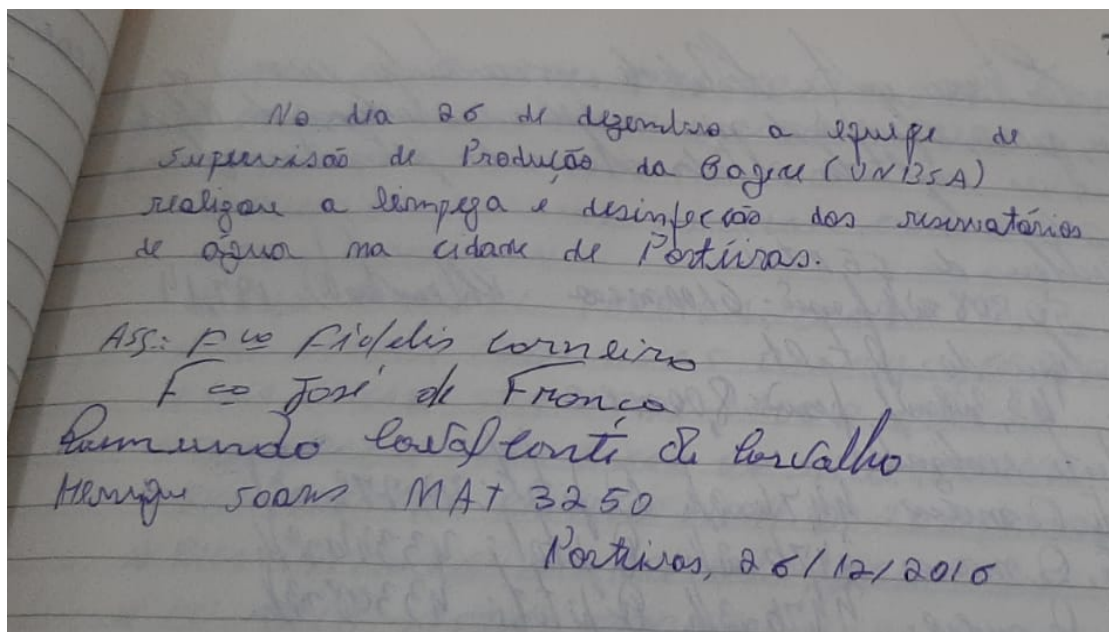 No dia 26 de dezembro a equipe de
Supervisão de Produção da Cagece (UNBSA)
realizou a limpeza e desinfecção dos reservatórios
de água na cidade de Porteiras.
Ass: Fco Fidelis Corneiro
Fco José de França
Raimundo Cavalcanti de Carvalho
Henrique Soares MAT 3250
Porteiras, 26/12/2016